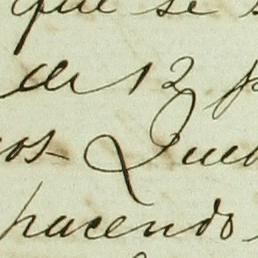 que se
de 12
os Queb
hacendo